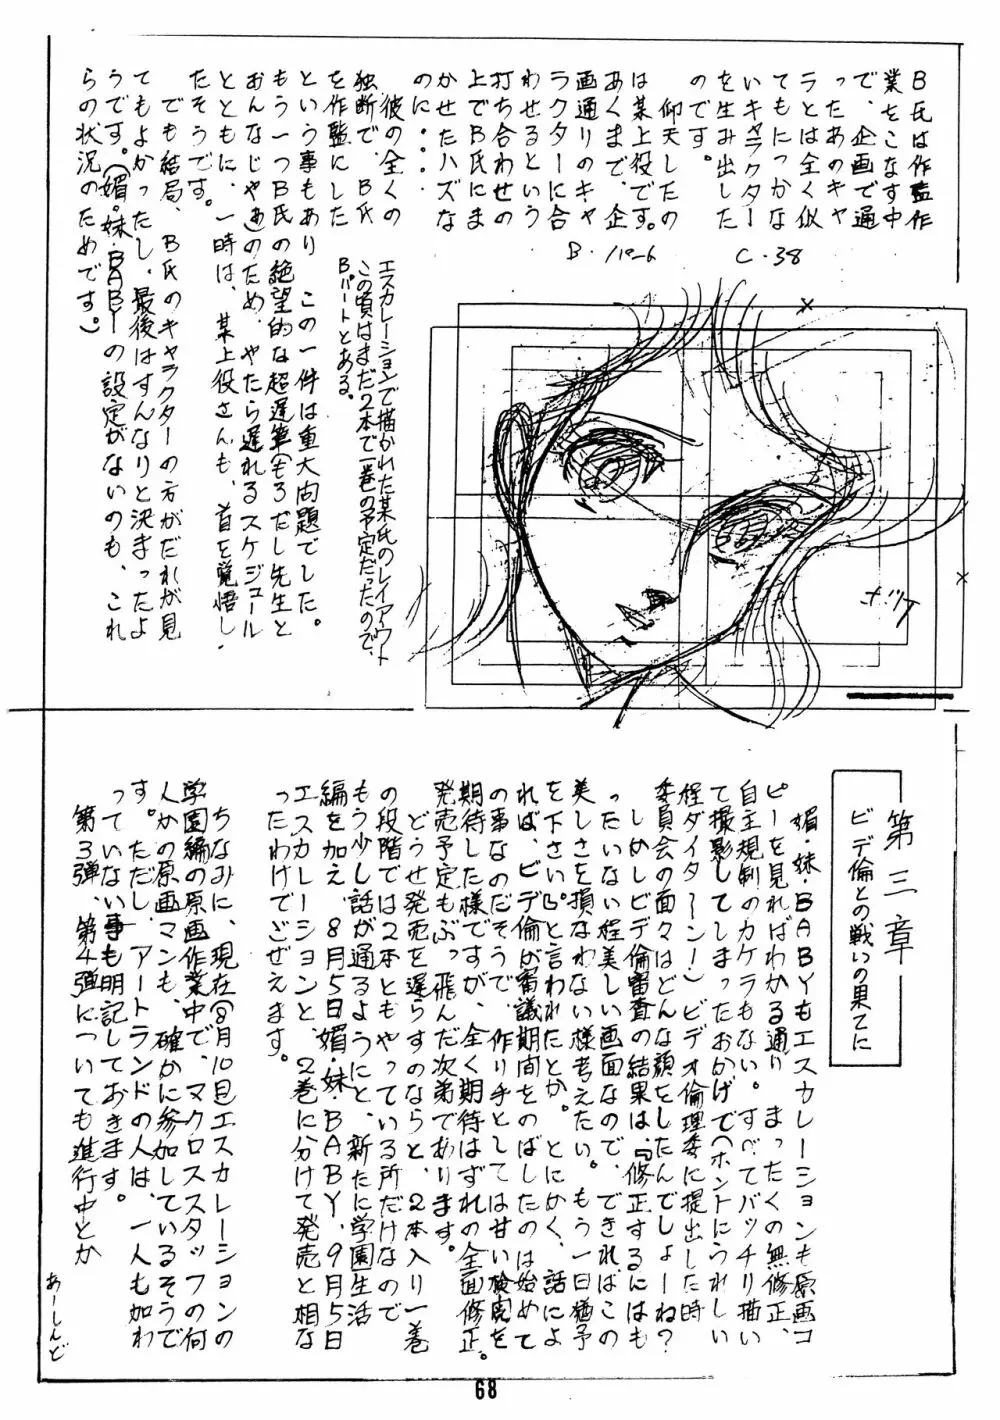 B氏は作監作
業をこなす中
で、企画で通
ったあのキャ
ラとは全く似
てもにつかな
いキャラクター
を生み出した
のです。
仰天したの
は某上役です。
あくまで、企
画通りのキャ
ラクターに合
わせるという
打ち合わせの
上でB氏にま
かせたハズな
のに・・・・
彼の全くの
独断で、B氏
を作監にした
という事もあり この一件は重大問題でした。
もう一つB氏の絶望的な超遅筆(もろだし先生と
おんなじやぁ)のため、やたら遅れるスケジュール
とともに、一時は、某上役さんも、首を覚悟し
たそうです。
でも結局、B氏のキャラクターの方がだれが見
てもよかったし、最後はすんなりと決まったよ
うです。(媚・妹・BABYの設定がないのも、これ
らの状況のためです。)
C・38
エスカレーションで描かれた某氏のレイアウト
この頃はまだ2本で一巻の予定だったので、
Bパートとある。
ボツ
第三章
ビデ倫との戦いの果てに
媚・妹・BABYもエスカレーションも原画コ
ピーを見ればわかる通り まったくの無修正、
自主規制のカケラもない。すべてバッチリ描い
て撮影してしまったおかげで(ホントにうれしい
程ダイターン!)ビデオ倫理委に提出した時
委員会の面々はどんな顔をしたんでしょーね?
しかしビデ倫審査の結果は、『修正するにはも
ったいない程美しい画面なので、できればこの
美しさを損なわない様考えたい。もう一日猶予
を下さい。』と言われたとか。とにかく、話によ
れば、ビデ倫が審議期間をのばしたのは始めて
の事なのだそうで、作り手としては甘い検閲を
期待した様ですが、全く期待はずれの全面修正。
発売予定もぶっ飛んだ次第であります。
どうせ発売を遅らすのならと、2本入り一巻
の段階では2本ともやっている所だけなので
もう少し話が通るようにと、新たに学園生活
編を加え、8月5日媚・妹・BABY、9月5日
エスカレーションと、2巻に分けて発売と相な
ったわけでござえます。
ちなみに、現在(8月10日)エスカレーションの
学園編の原画作業中で、マクロススタッフの何
人かの原画マンも、確かに参加しているそうで
す。ただし、アートランドの人は、一人も加わ
っていない事も明記しておきます。
第3弾、第4弾についても進行中とか
あーしんど
68